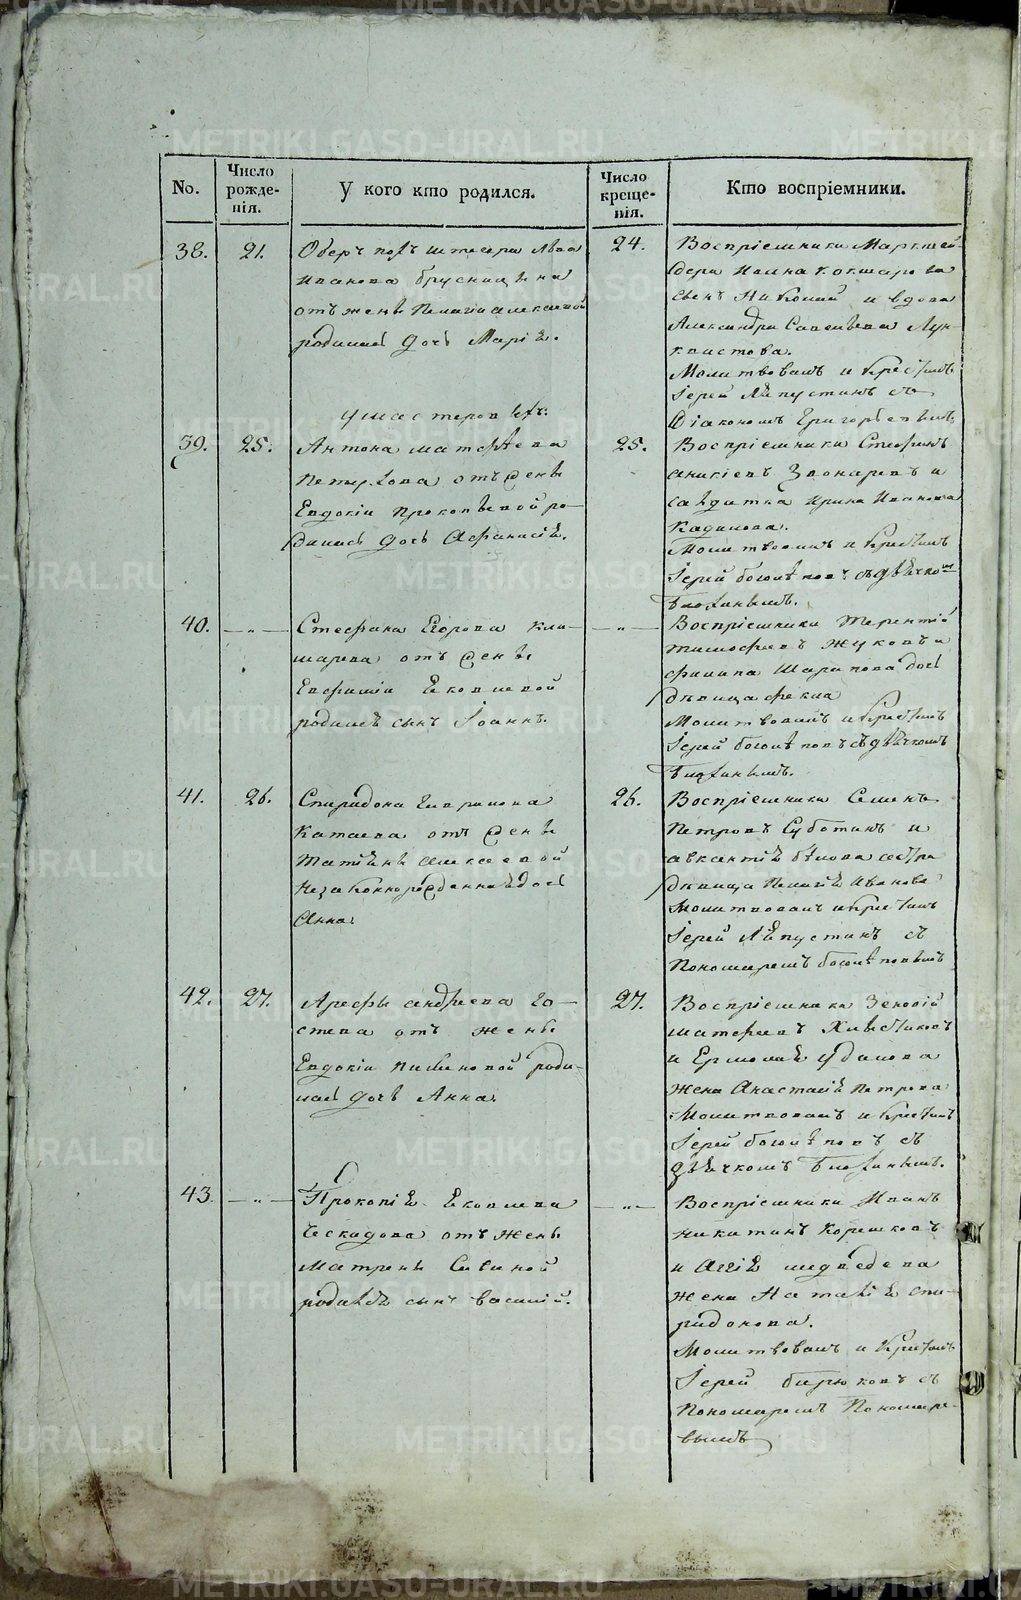 No.
Число рожде-
нія.
У кого кто родился.
Число
креще-
нія.
Кто воспріемники.
38.
21.
Оберъ Штегера Льва
Иванова Брусницына
отъ жены Пелагіи Алексѣевой
родилась дочь Марія.
24.
Воспріемники Маркшей-
дера Ивана Кокшарова
сынъ Николай и вдова
Александра Савельева Лун-
квистова.
Молитвовалъ и крестилъ
Іерей Ляпустинъ съ
Діакономъ Григорьевымъ
У мастеровыхъ:
39.
25.
Антона Матфѣева
отъ жены
Евдокіи Прокопьевой ро-
дилась дочь Афанасія.
25.
Воспріемники Стефанъ
Аникіевъ Звонаревъ и
солдатка Ирина Иванова
Кадилова.
Молитвовалъ и крестилъ
Іерей Боголѣповъ съ дьячкомъ
40.
— „ —
Стефана Егорова
отъ жены
Евфиміи Яковлевой
родился сынъ Іоаннъ.
— „ —
Воспріемники Терентій
Тимофѣевъ Жуковъ и
Филипа Шарапова дочь
дѣвица Фекла
Молитвовалъ и крестилъ
Іерей Боголѣповъ съ дьячкомъ
41.
26.
Спиридона Гаврилова
Катаева отъ жены
Татіяны Алексѣевой
незаконнорожденная дочь
Анна.
26.
Воспріемники Семенъ
Петровъ Суботинъ и
сестра
дѣвица Пелагія Иванова
Молитвовалъ и крестилъ
Іерей Ляпустинъ съ
Пономаремъ Боголѣповымъ
42.
27.
Арефы Андреева Го-
стева отъ жены
Евдокіи Пименовой роди-
лась дочь Анна.
27.
Воспріемники Зеновій
Матфѣевъ
и Ермолая Удилова
жена Анастасія Петрова
Молитвовалъ и крестилъ
Іерей Боголѣповъ съ
дьячкомъ
43.
— „ —
Прокопія Яковлева
отъ жены
Матроны Савиной
родился сынъ Василій.
— „ —
Воспріемники Иванъ
Никитинъ Корешковъ
и Медведева
жена Наталія Спи-
ридонова.
Молитвовалъ и крестилъ
Іерей Бирюковъ съ
Пономаремъ Пономаре-
вымъ
METRIKI.GASO-URAL.RU